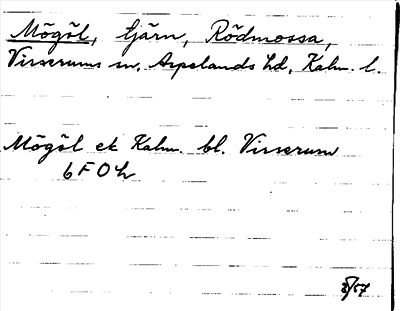 Mögöl, tjärn, Rödmossa,
Virserums sn, Aspelands hd, Kalm. l.
Mögöl ek Kalm. bl. Virserum
6 F 0 h
8/57